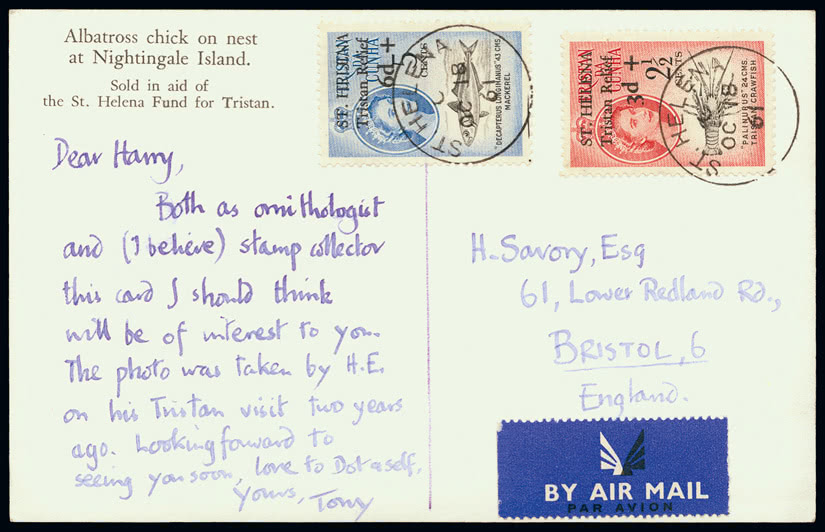 Albatross chick on nest
at Nightingale Island.
Sold in aid of
the St. Helena Fund for Tristan.
Dear Harry,
Both as ornithologist
and (I believe) stamp collector
this card I should think
will be of interest to you.
The photo was taken by H.E.
on his Tristan visit two years
ago. Looking forward to
seeing you soon, love to Dot & self,
Yours, Tony
ST. HELENA
Tristan Relief
6d +
CUNHA
CENTS
"DECAPTERUS LONGIMANUS" 43 CMS.
MACKEREL
ST HELENA
OC 18
61
ST. HELENA
Tristan Relief
3d +
DA
CUNHA
2½
CENTS
"PALINURUS" 24 CMS.
TRISTAN CRAWFISH
ST HELENA
OC 18
61
H. Savory, Esq
61, Lower Redland Rd.,
BRISTOL, 6
England.
BY AIR MAIL
PAR AVION